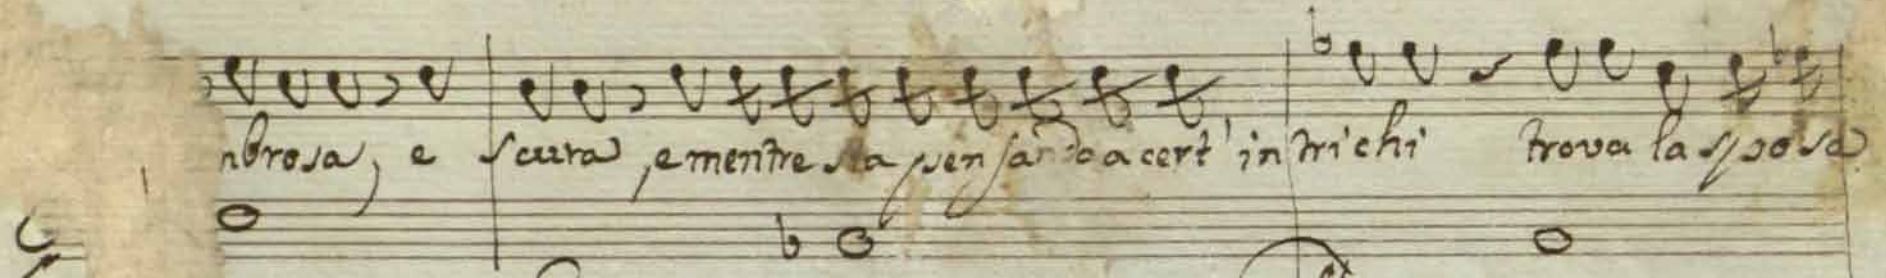 nbrosa, e scura, e mentre sta pensando a cert' intrichi trova la sposa